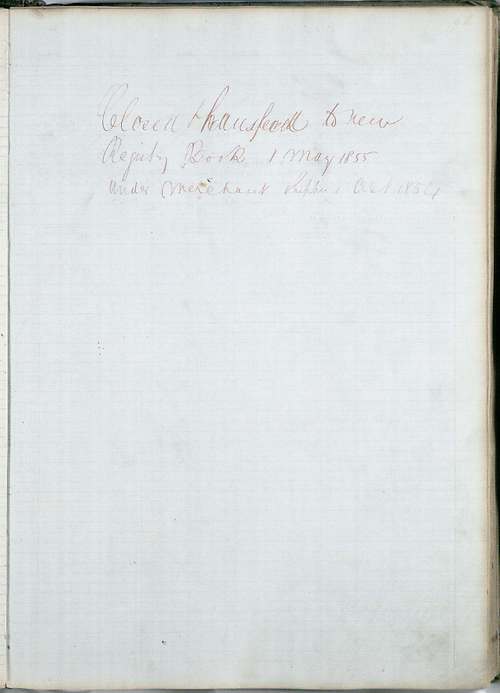 Closed & transferred to new
Registry Book 1 May 1855
under Merchant Shipping Act 1854